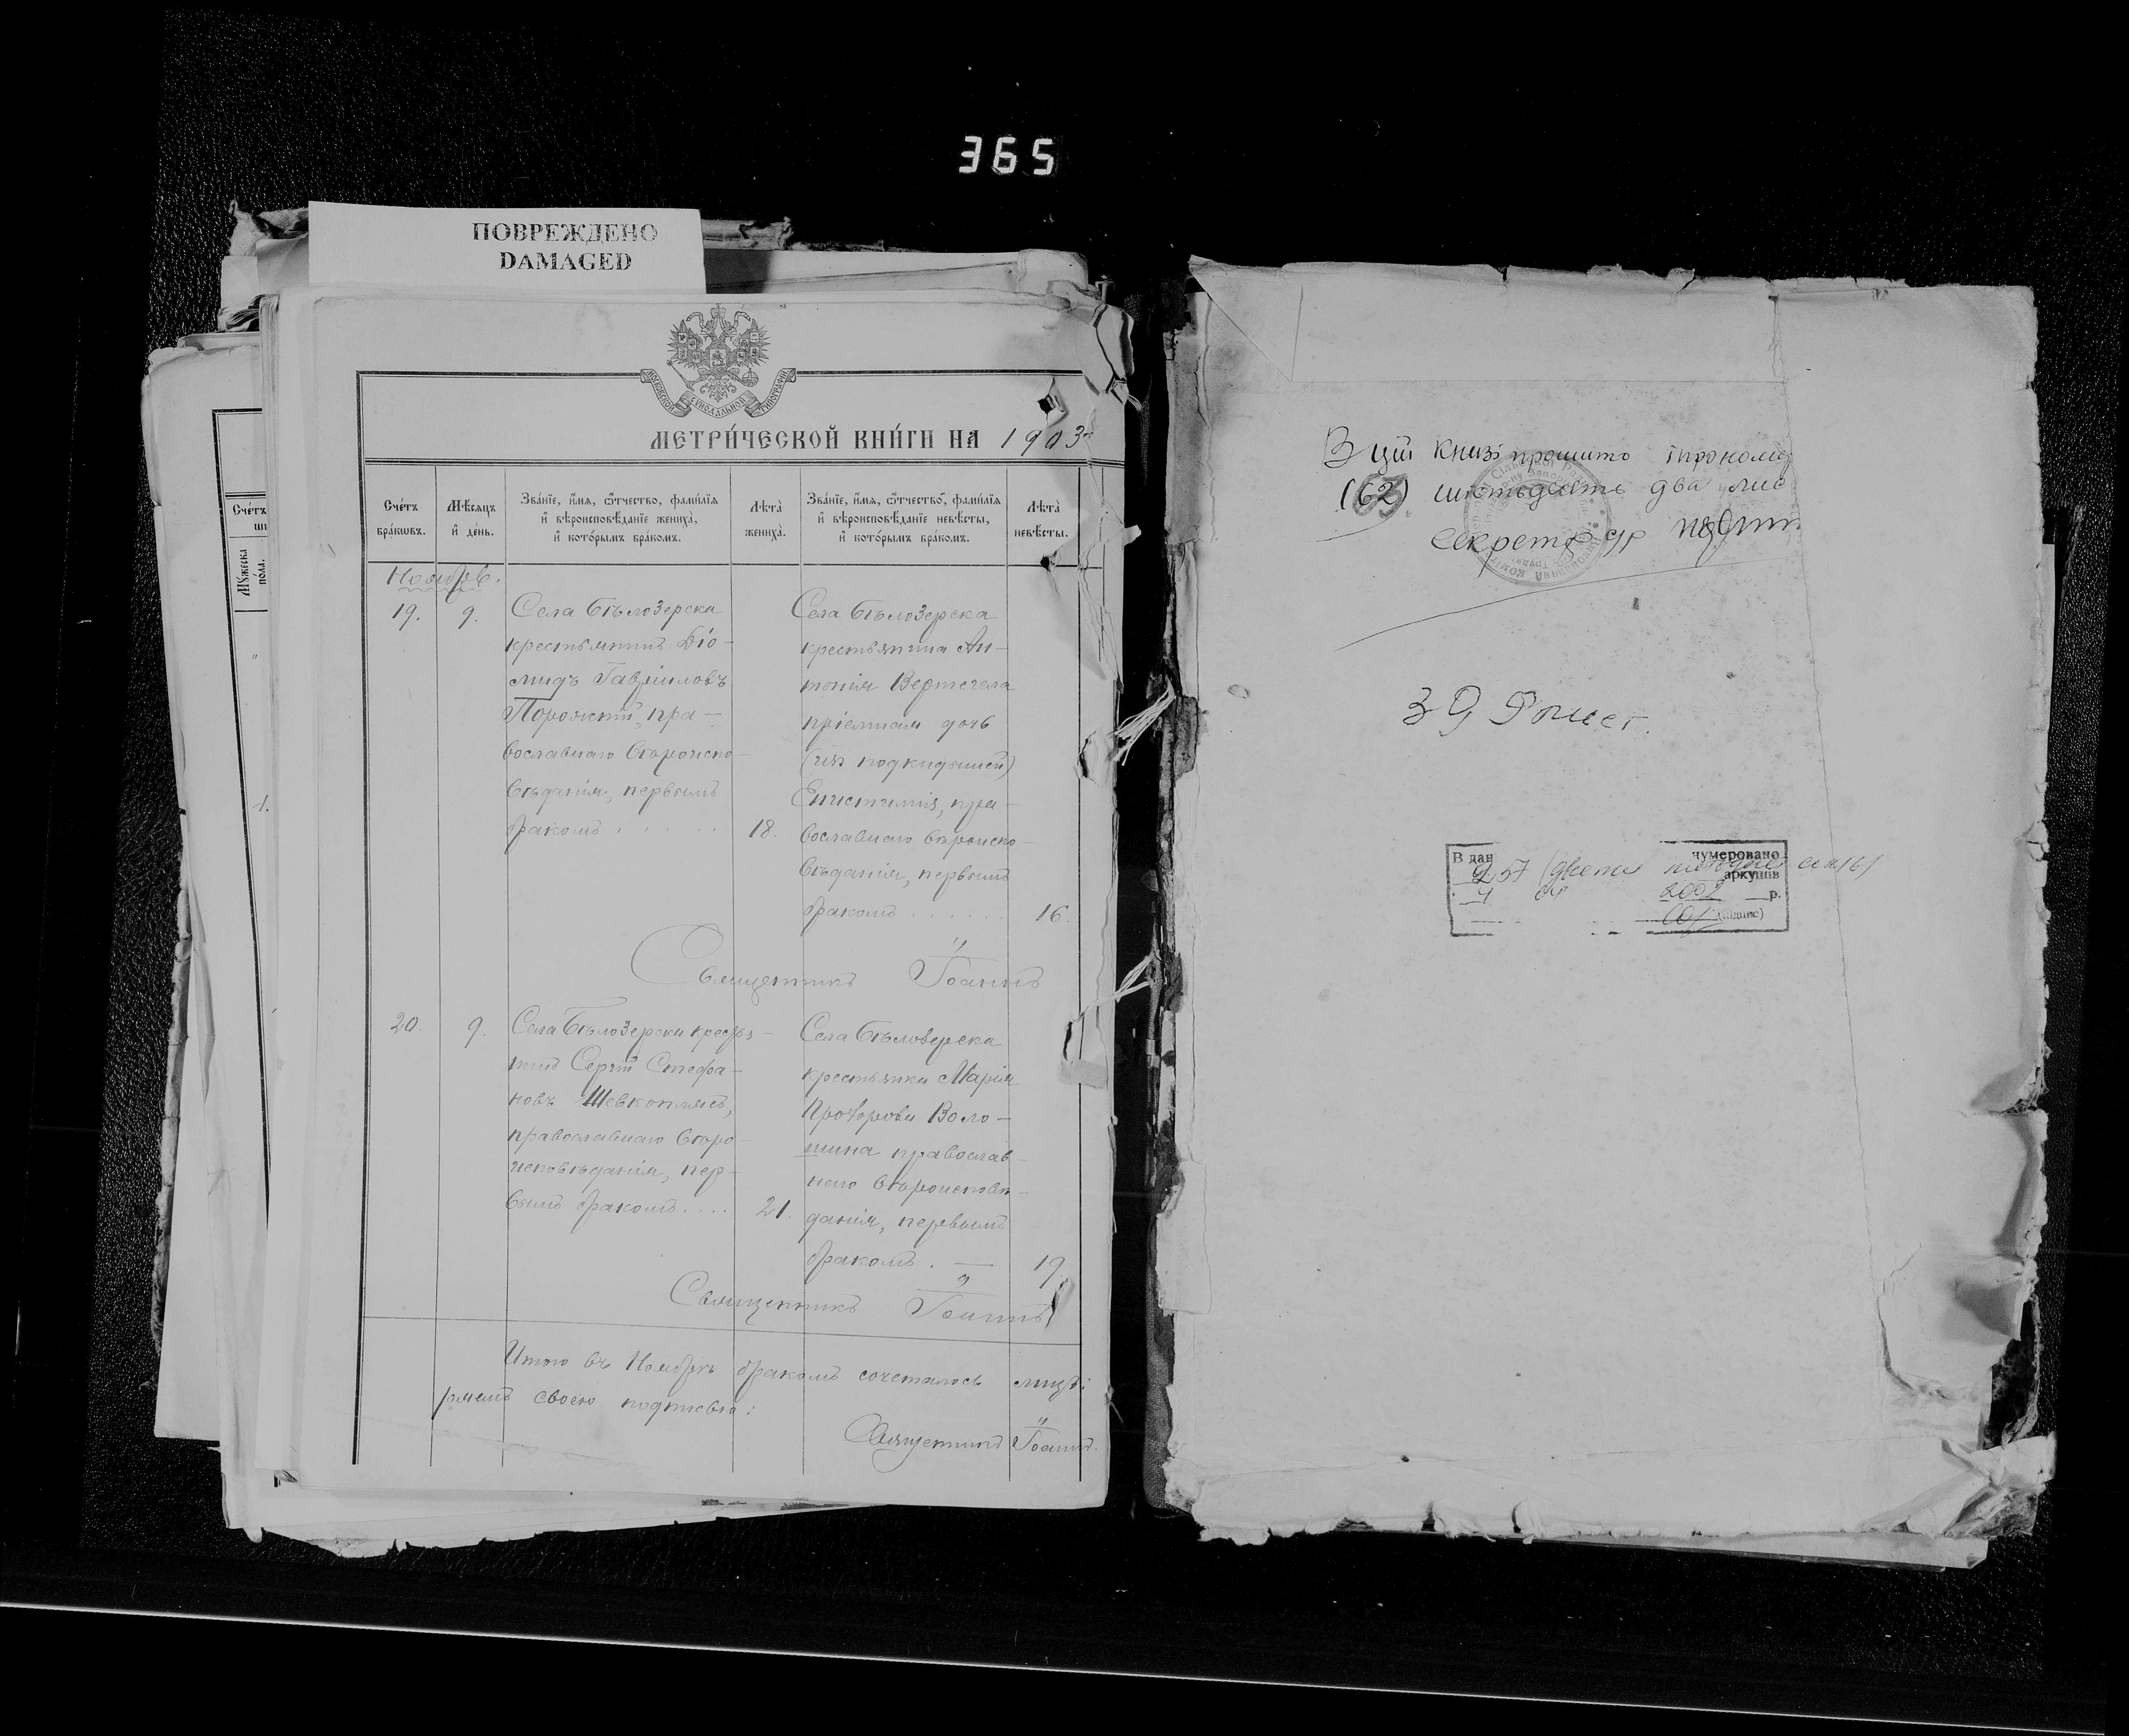 365
ПОВРЕЖДЕНО
DAMAGED
МОСКОВСКОЙ СѴНОДАЛЬНОЙ ТИПОГРАФІИ
МЕТРИ́ЧЕСКОЙ КНИ́ГИ НА 1903
Счéтъ
бра́кѡвъ.
Мѣ́сѧцъ
и҆ де́нь.
Зва́нїе, и҆́мѧ, ѻ҆́тчество, фами́лїѧ
и҆ вѣроисповѣ́данїе жениха̀,
и҆ кото́рымъ бра́комъ.
Лѣта̀
жениха̀.
Зва́нїе, и҆́мѧ, ѻ҆́тчество, фами́лїѧ
и҆ вѣроисповѣ́данїе невѣ́сты,
и҆ кото́рымъ бра́комъ.
Лѣта̀
невѣ́сты.
Счéтъ
Мꙋ́жеска
по́ла.
Ноябрь.
19.
9.
Села Бѣлозерки
крестьянинъ Діо-
мидъ Гавріиловъ
православнаго вѣроиспо-
вѣданія, первымъ
бракомъ . . . . .
18.
Села Бѣлозерска
крестьянина Ан-
тонія Вертегела
пріемная дочь
(изъ подкидышей)
Епистимія, пра-
вославнаго вѣроиспо-
вѣданія, первымъ
бракомъ . . . .
16.
Священникъ Іоаннъ
20.
9.
Села Бѣлозерки крестья-
нинъ Сергій Стефа-
новъ Шевкоплясъ,
православнаго вѣро-
исповѣданія, пер-
вымъ бракомъ . . . .
21.
Села Бѣлозерска
крестьянка Марія
Прохорова Воло-
шина православ-
наго вѣроисповѣ-
данія, первымъ
бракомъ . —
19.
Священникъ Іоаннъ
Итого въ Ноябрѣ бракомъ сочеталось лицъ:
ряемъ своею подписью:
Священникъ Іоаннъ.
В цій книзі прошито
(62) шістьдесять два лис
секретар с/р
В дан
нумеровано
257 (двести пятьдесят семь)
аркушів
4 04 2002 р.
(підпис)